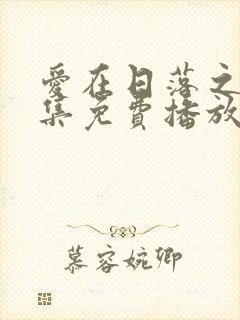 愛在日落之
集免費播放
慕容婉卿